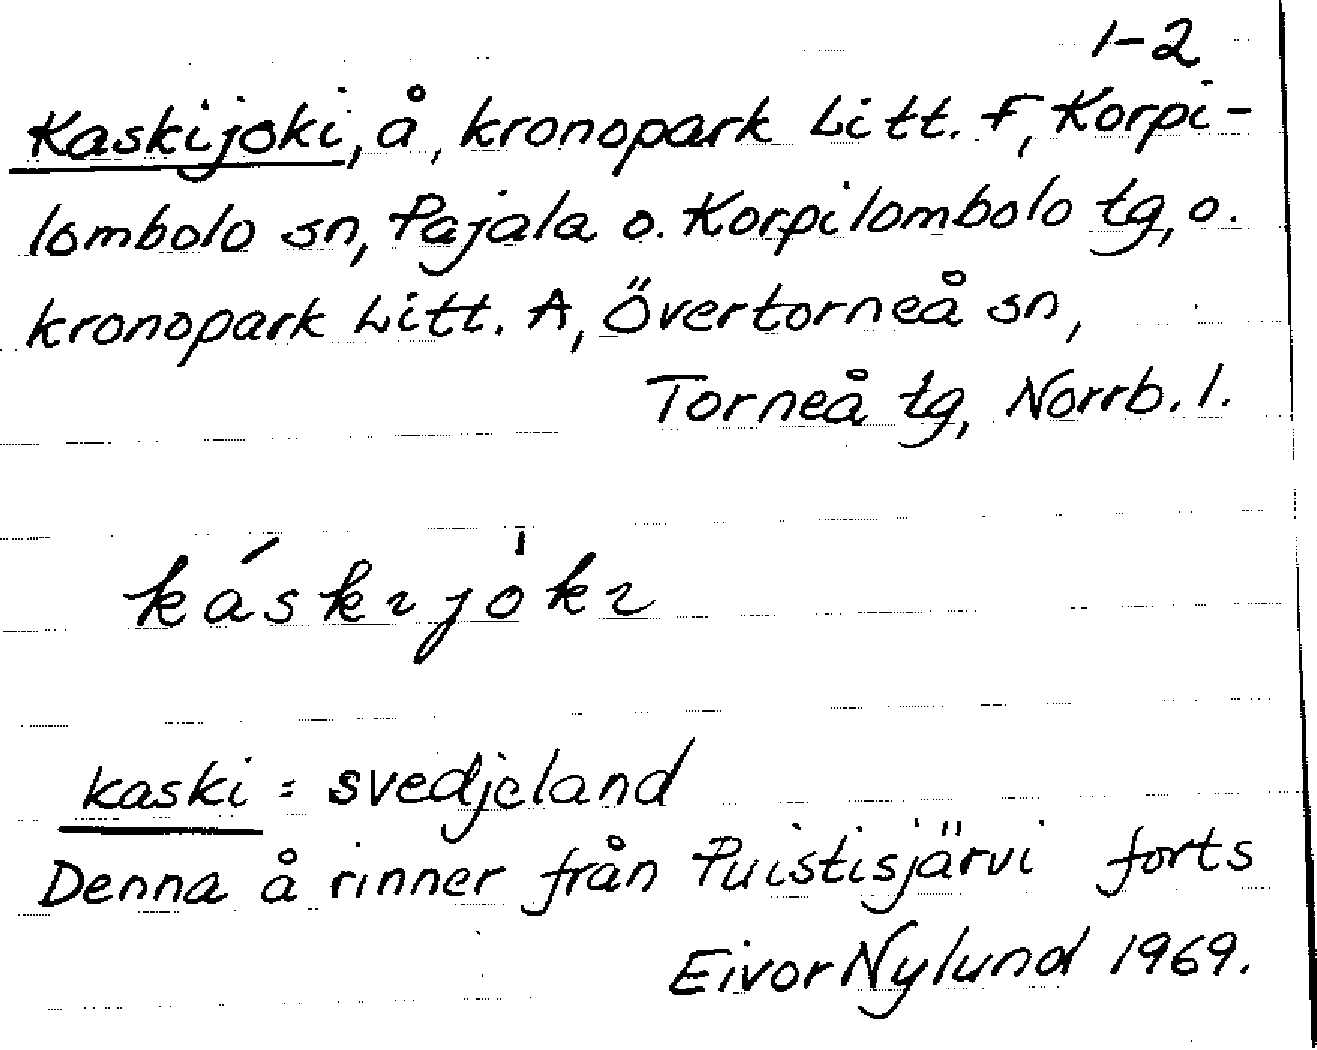 1-2
Kaskijoki, å, kronopark Litt. F, Korpi-
lombolo sn, Pajala o. Korpilombolo tg, o.
kronopark Litt. A, Övertorneå sn,
Torneå tg, Norrb. l.
káskıjòkı
kaski = svedjeland
Denna å rinner från Puistisjärvi forts
Eivor Nylund 1969.